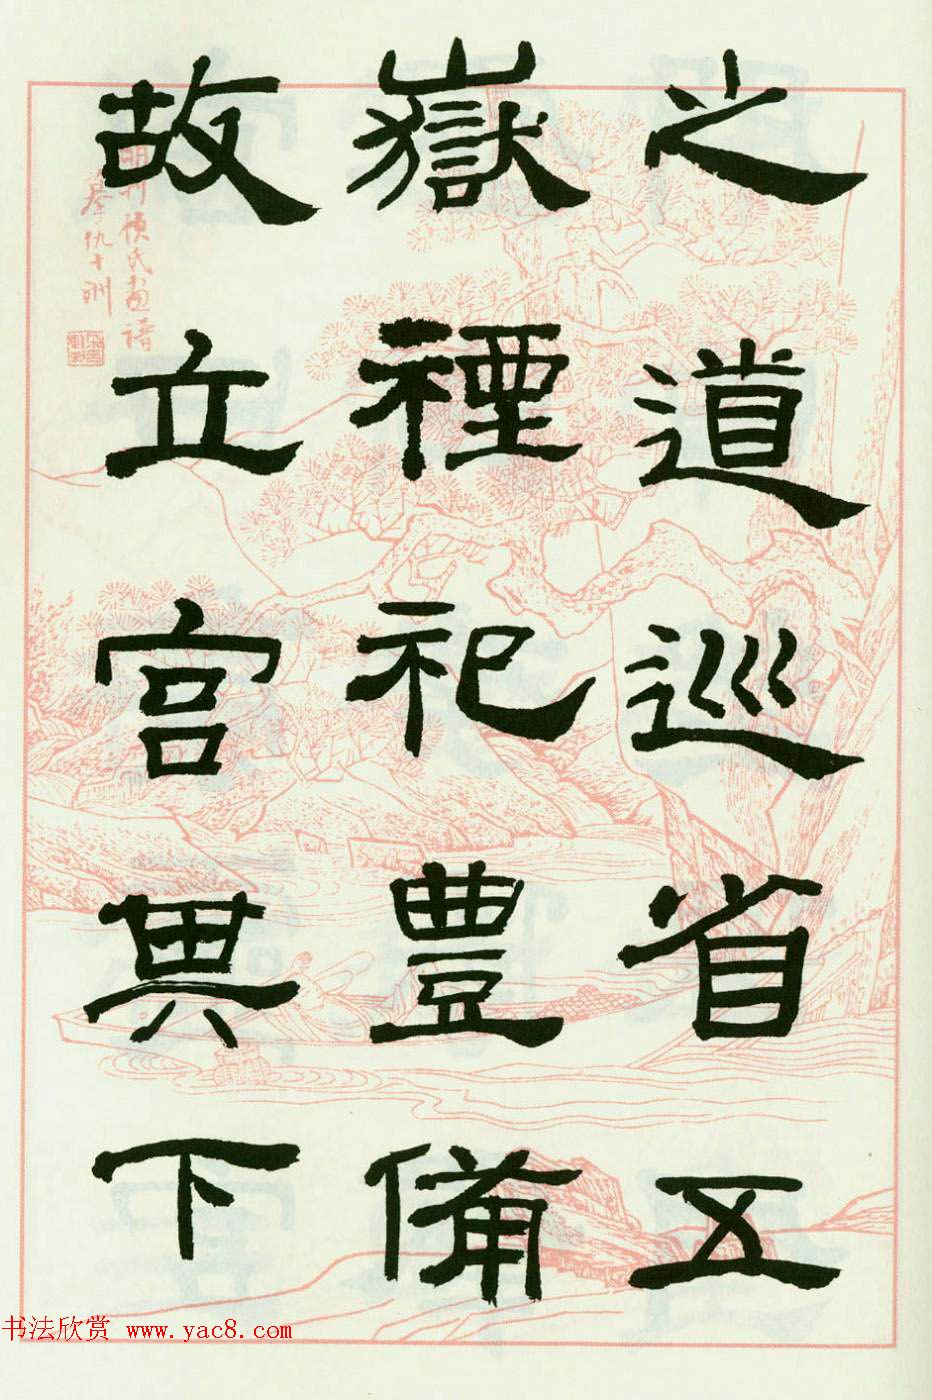 之道巡省五
嶽禋祀豐備
故立宮其下
明刊顧氏畫譜
摹仇十洲
书法欣赏 www.yac8.com